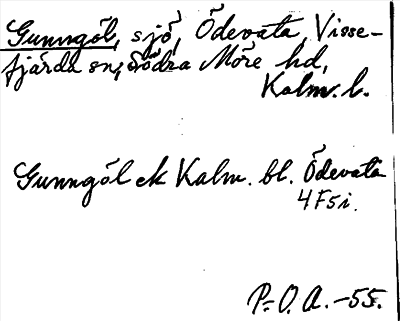 Gunngöl, sjö, Ödevata, Visse-
fjärda sn, Södra Möre hd,
Kalm. l.
Gunngöl ek Kalm. bl. Ödevata
4F5i.
P.-O. A. -55.